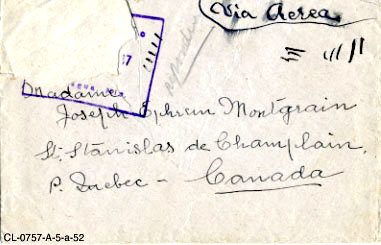 Via Aerea
Madame
Joseph Ephrem Montgrain
St. Stanislas de Champlain,
P. Quebec - Canada
CL-0757-A-5-a-52